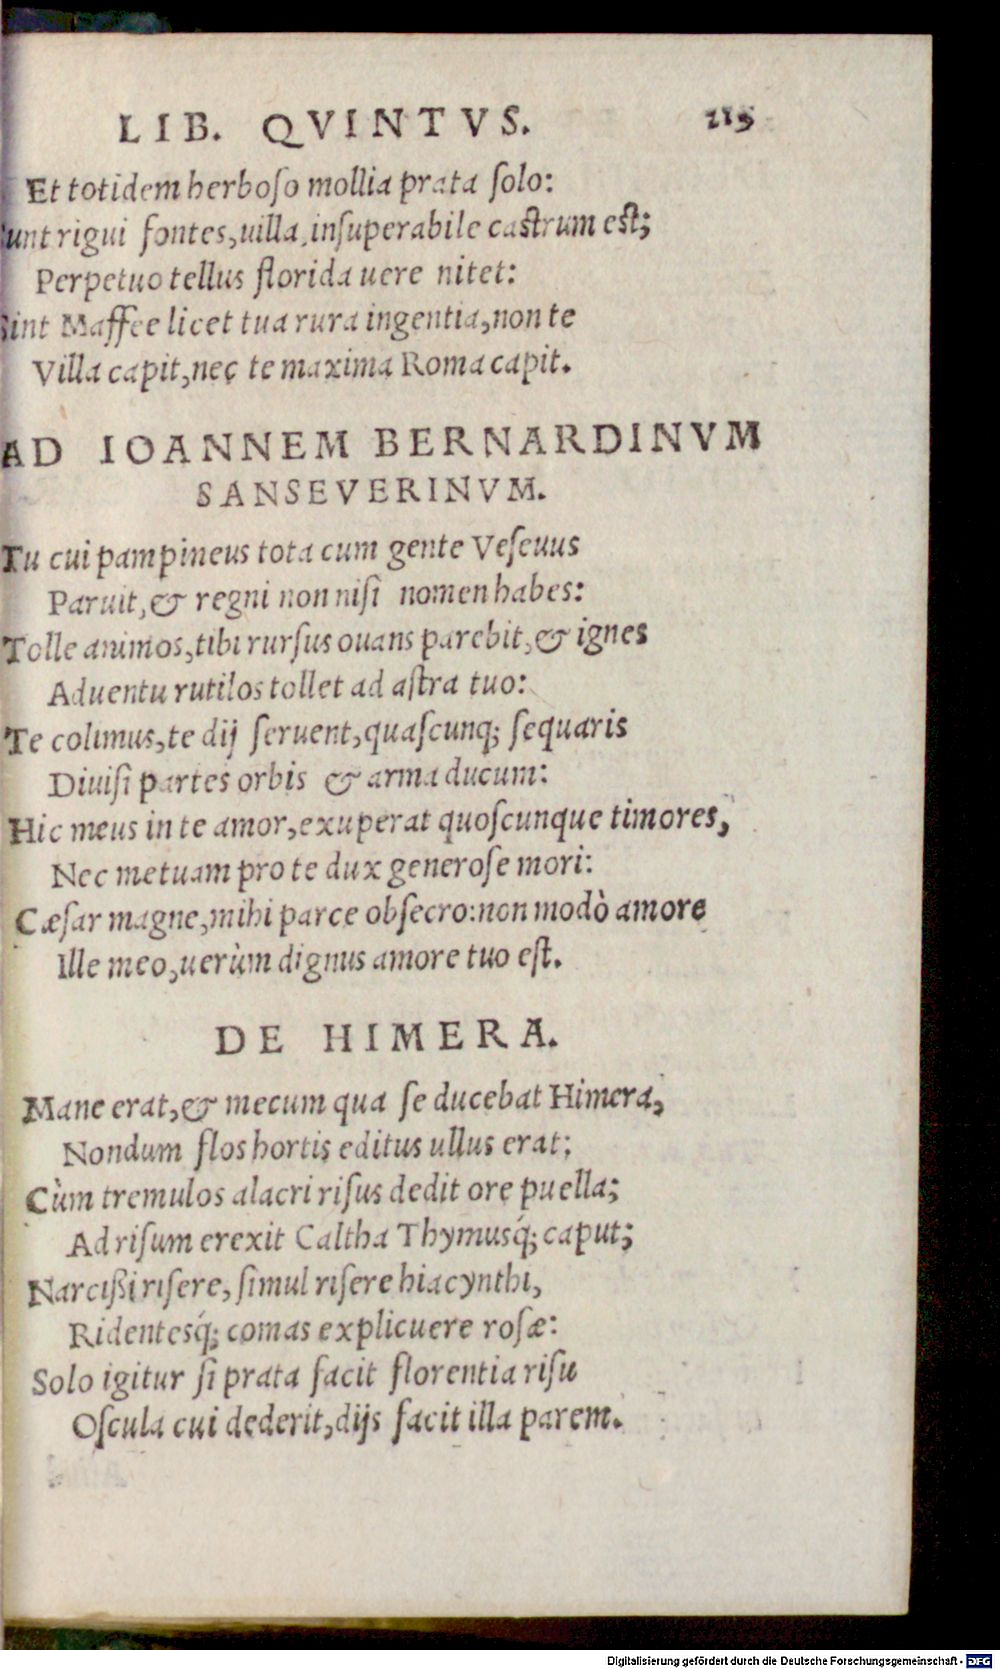 LIB. QVINTVS. 215
Et totidem herboso mollia prata solo:
Sunt rigui fontes, uilla, insuperabile castrum est;
Perpetuo tellus florida uere nitet:
Sint Maffee licet tua rura ingentia, non te
Villa capit, nec te maxima Roma capit.
AD IOANNEM BERNARDINVM
SANSEVERINVM.
Tu cui pampineus tota cum gente Veseuus
Paruit, & regni non nisi nomen habes:
Tolle animos, tibi rursus ouans parebit, & ignes
Aduentu rutilos tollet ad astra tuo:
Te colimus, te dij seruent, quascunq; sequaris
Diuisi partes orbis & arma ducum:
Hic meus in te amor, exuperat quoscunque timores,
Nec metuam pro te dux generose mori:
Cæsar magne, mihi parce obsecro: non modò amore
Ille meo, uerùm dignus amore tuo est.
DE HIMERA.
Mane erat, & mecum qua se ducebat Himera,
Nondum flos hortis editus ullus erat;
Cùm tremulos alacri risus dedit ore puella;
Ad risum erexit Caltha Thymusq́; caput;
Narcißi risere, simul risere hiacynthi,
Ridentesq́; comas explicuere rosæ:
Solo igitur si prata facit florentia risu
Oscula cui dederit, dijs facit illa parem.
Digitalisierung gefördert durch die Deutsche Forschungsgemeinschaft - DFG